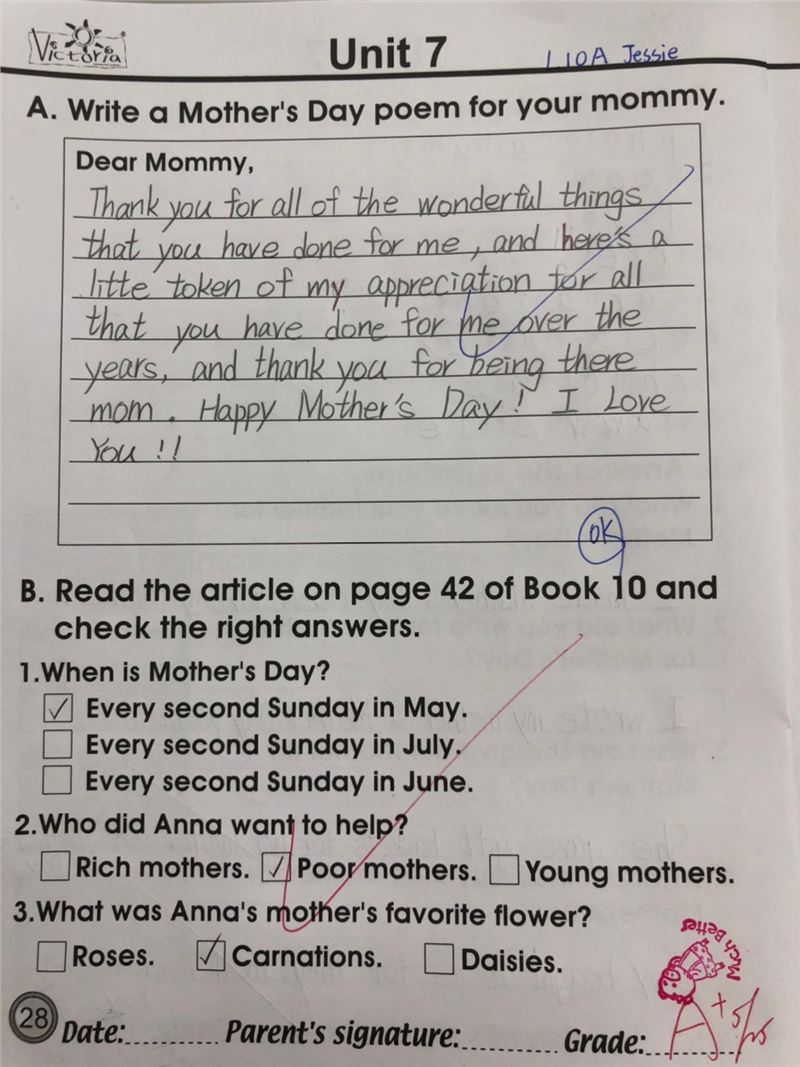 Victoria
Unit 7
110A Jessie
A. Write a Mother's Day poem for your mommy.
Dear Mommy,
Thank you for all of the wonderful things
that you have done for me, and here's a
litte token of my appreciation for all
that you have done for me over the
years, and thank you for being there
mom. Happy Mother's Day! I Love
You!!
OK
B. Read the article on page 42 of Book 10 and
check the right answers.
1.When is Mother's Day?
✓ Every second Sunday in May.
Every second Sunday in July.
Every second Sunday in June.
2.Who did Anna want to help?
Rich mothers. ✓ Poor mothers. Young mothers.
3.What was Anna's mother's favorite flower?
Roses. ✓ Carnations. Daisies.
Much Better
28 Date:.......... Parent's signature:.......... Grade:.......... A+